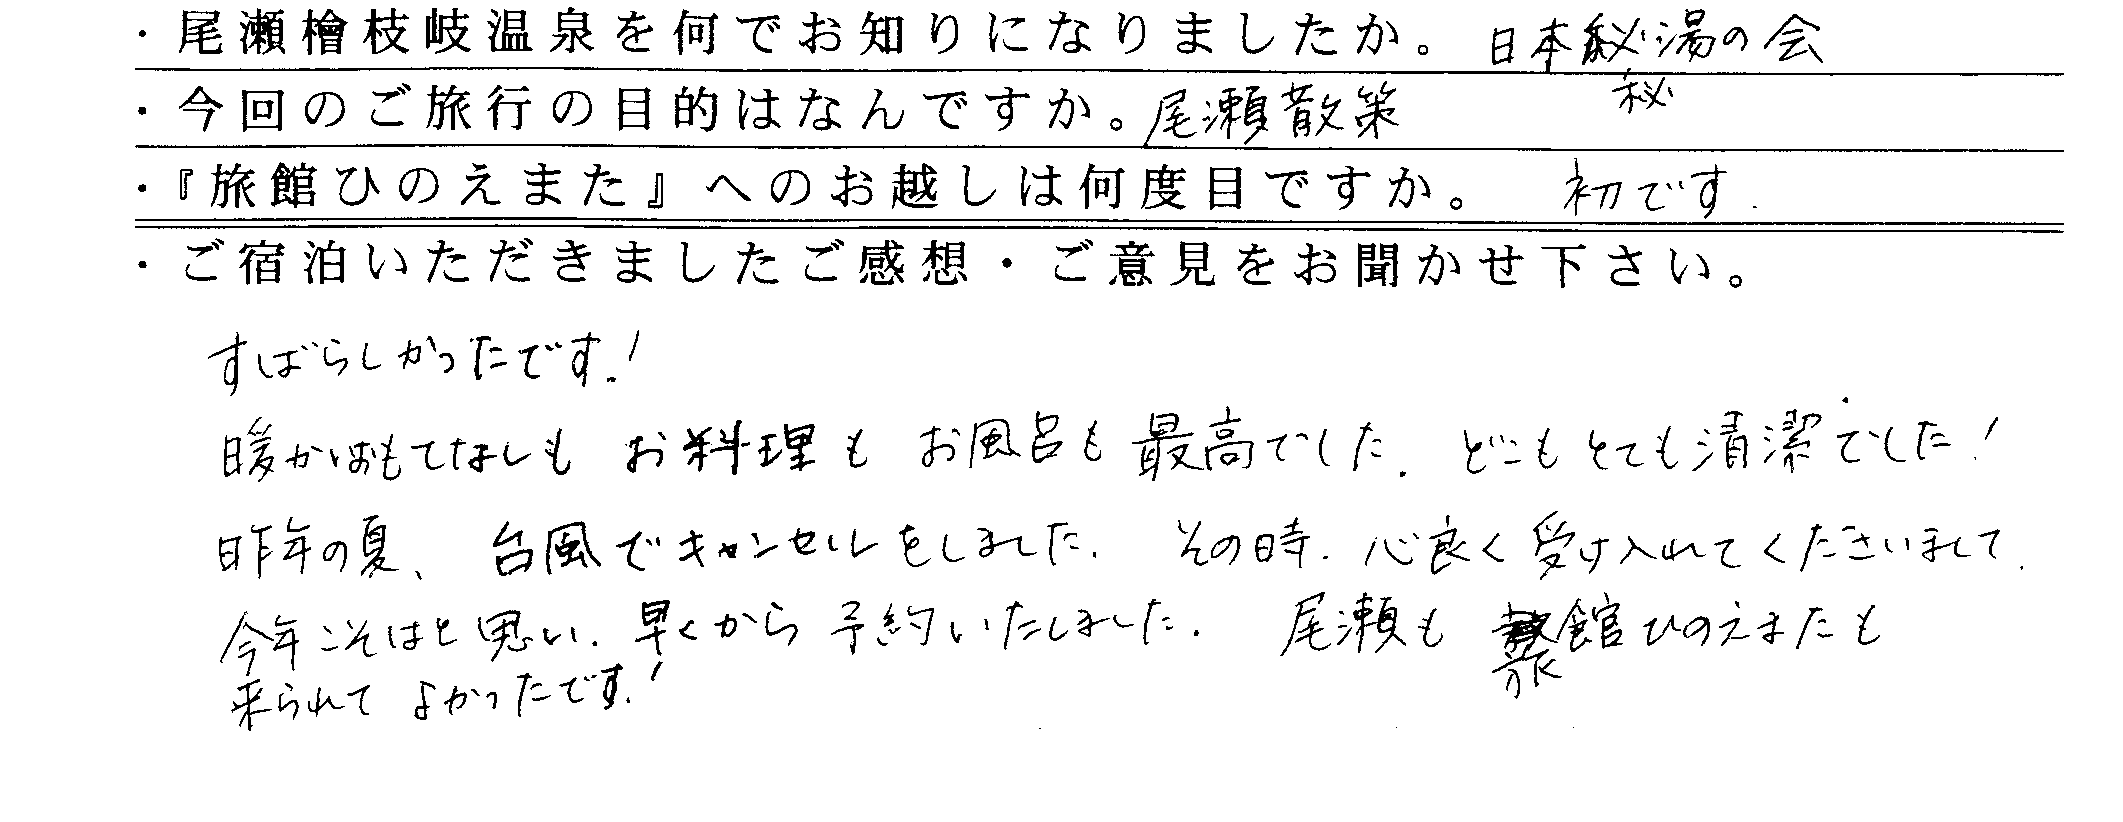 ・尾瀬檜枝岐温泉を何でお知りになりましたか。 日本秘湯の会
秘
・今回のご旅行の目的はなんですか。尾瀬散策
・『旅館ひのえまた』へのお越しは何度目ですか。 初です.
・ご宿泊いただきましたご感想・ご意見をお聞かせ下さい。
すばらしかったです!
暖かいおもてなしも お料理も お風呂も 最高でした. どこもとても清潔でした!
昨年の夏、台風でキャンセルをしました. その時. 心良く受け入れてくださいまして.
今年こそはと思い. 早くから予約いたしました. 尾瀬も 旅館ひのえまたも
来られて よかったです!